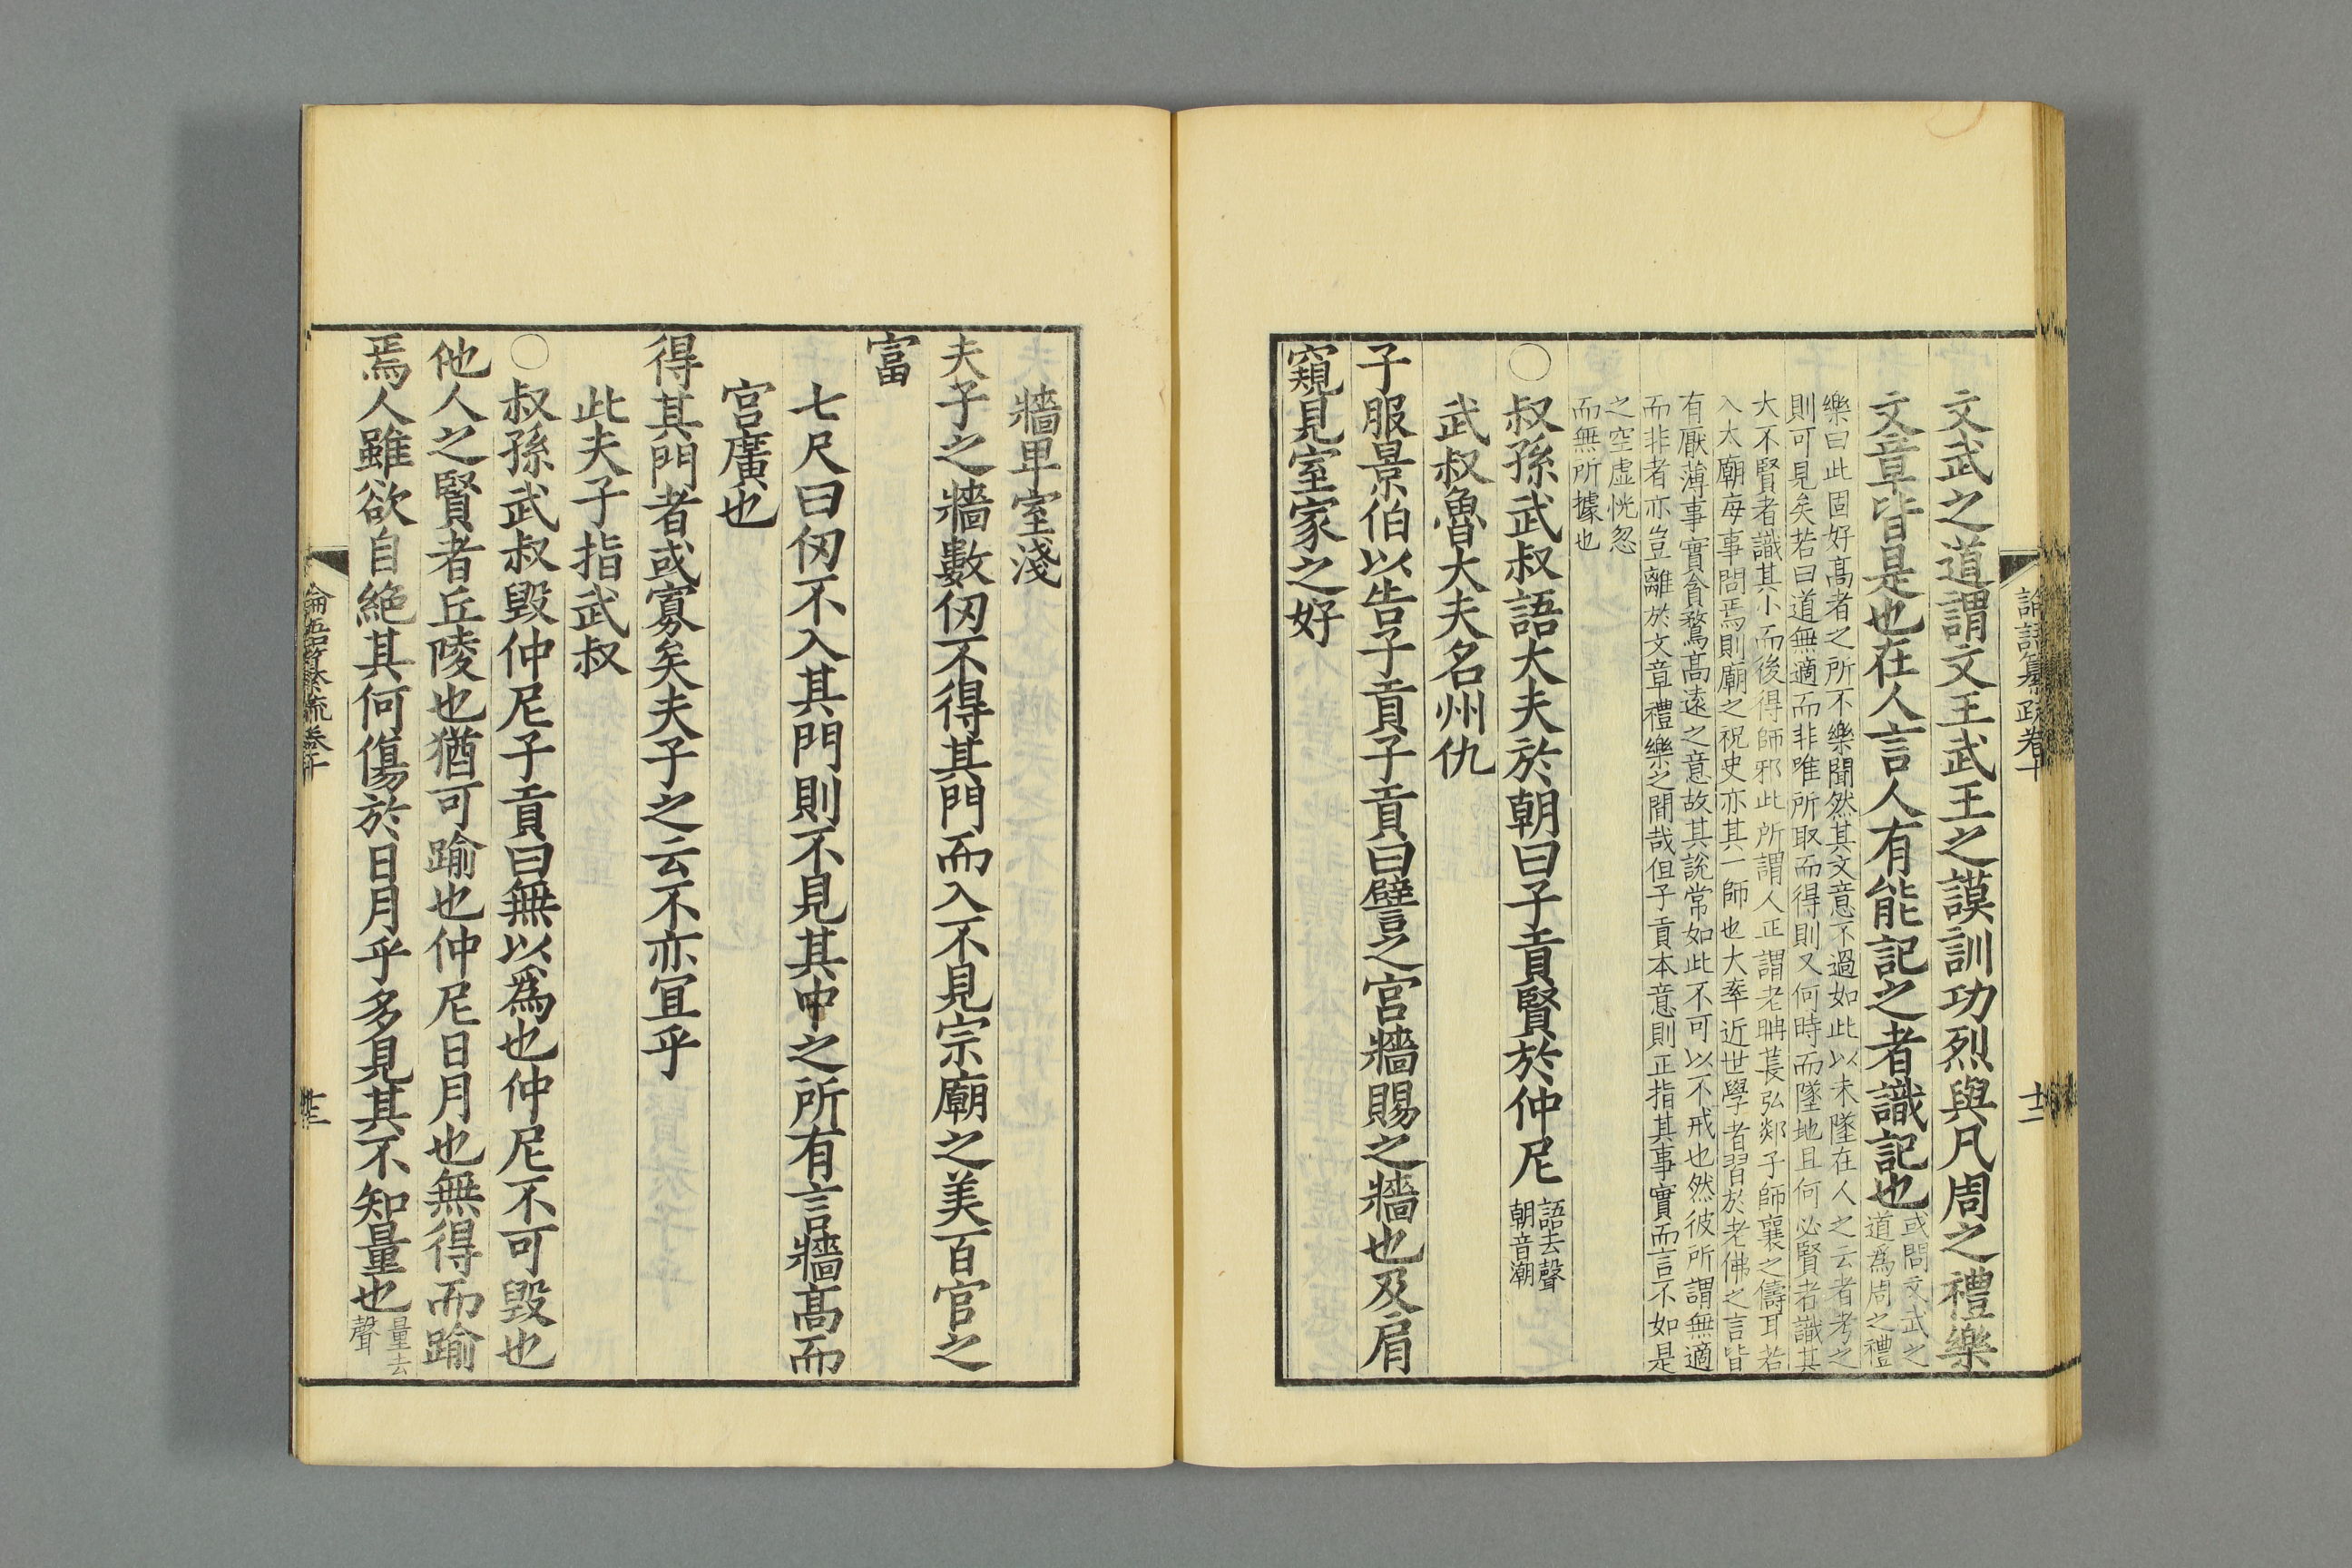 論語纂疏卷十
十二
文武之道謂文王武王之謨訓功烈與凡周之禮樂
文章皆是也在人言人有能記之者識記也
或問文武之
道爲周之禮
樂曰此固好髙者之所不樂聞然其文意不過如此以未墜在人之云者考之
則可見矣若曰道無適而非唯所取而得則又何時而墜地且何必賢者識其
大不賢者識其小而後得師邪此所謂人正謂老聃萇弘郯子師襄之儔耳若
入大廟每事問焉則廟之祝史亦其一師也大率近世學者習於老佛之言皆
有厭薄事實貪騖髙遠之意故其說常如此不可以不戒也然彼所謂無適
而非者亦豈離於文章禮樂之間哉但子貢本意則正指其事實而言不如是
之空虛恍忽
而無所據也
○叔孫武叔語大夫於朝曰子貢賢於仲尼
語去聲
朝音潮
武叔魯大夫名州仇
子服景伯以告子貢子貢曰譬之宮牆賜之牆也及肩
窺見室家之好
牆卑室淺
夫子之牆數仞不得其門而入不見宗廟之美百官之
富
七尺曰仞不入其門則不見其中之所有言牆髙而
宮廣也
得其門者或寡矣夫子之云不亦宜乎
此夫子指武叔
○叔孫武叔毀仲尼子貢曰無以爲也仲尼不可毀也
他人之賢者丘陵也猶可踰也仲尼日月也無得而踰
焉人雖欲自絶其何傷於日月乎多見其不知量也
量去
聲
論語纂疏卷十
十三